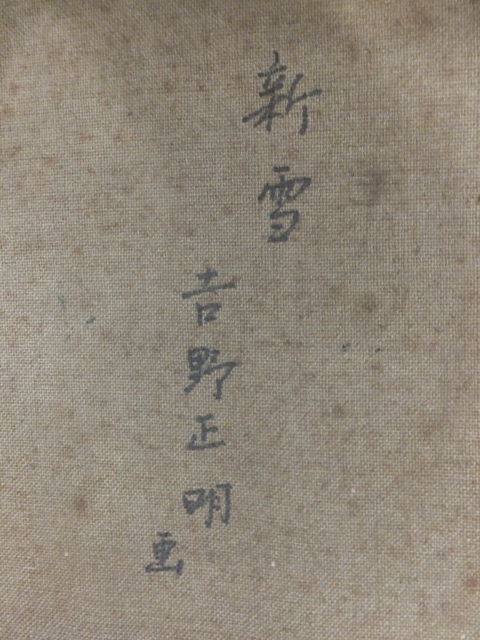 新雪
吉野正明
画